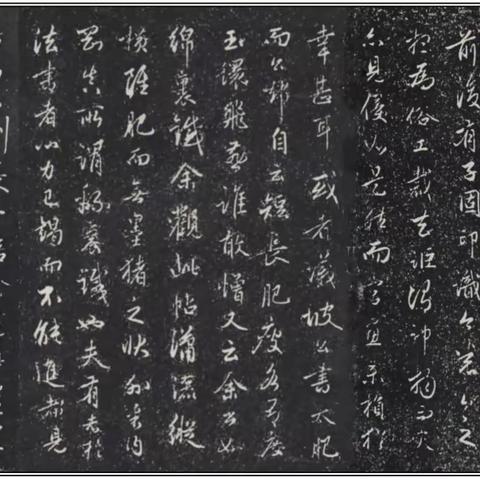 前後有子固印識
為俗工裁去
而字畫未損猶
幸甚耳或者議坡公書太肥
而公却自云短長肥瘦各有度
玉環飛燕誰敢憎又云余書如
綿裹鐵余觀此帖瀟洒縱
橫雖肥而無墨豬之狀外柔內
剛真所謂綿裹鐵也夫有志於
法書者心力已竭而不能進者見